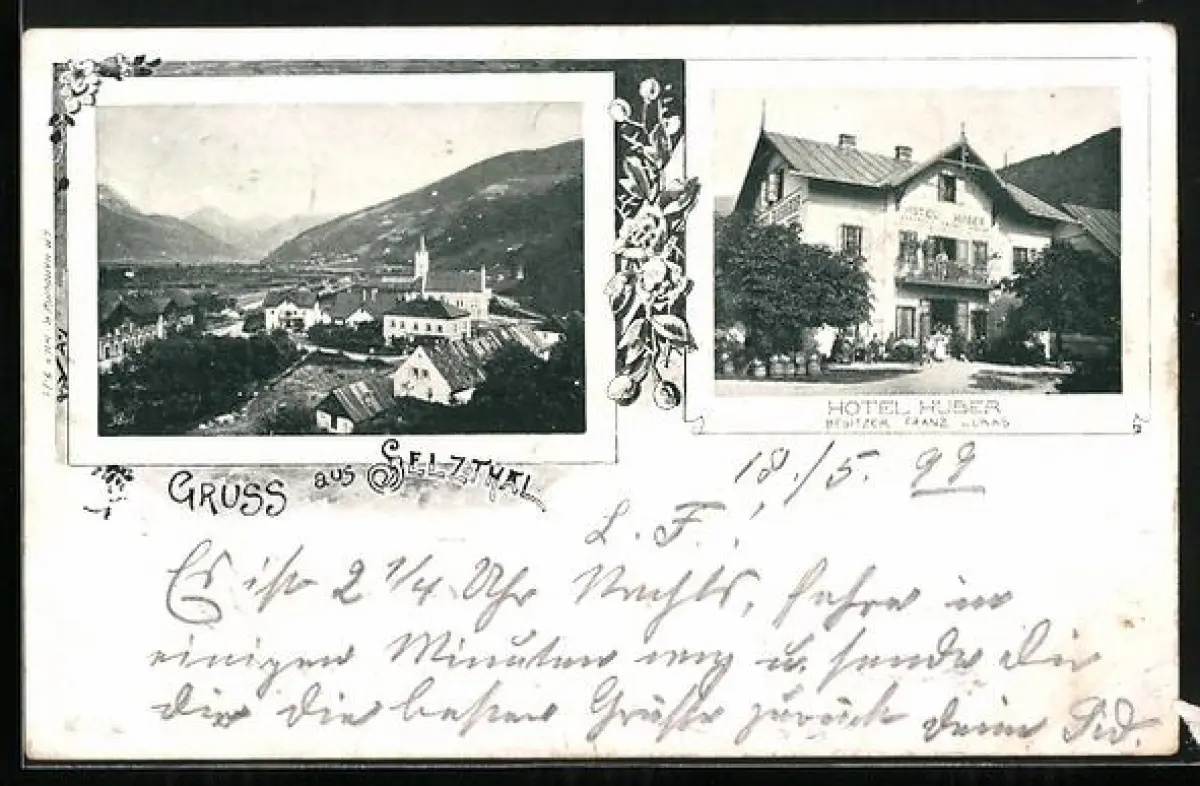 HOTEL HUBER
HOTEL HUBER
BESITZER FRANZ
GRUSS aus SELZTHAL
18./5. 99
L. F.!
Es ist 2 1/4 Uhr Nachts, fahre in
einigen Minuten weg u. sende dir
die besten Grüße zurück dein